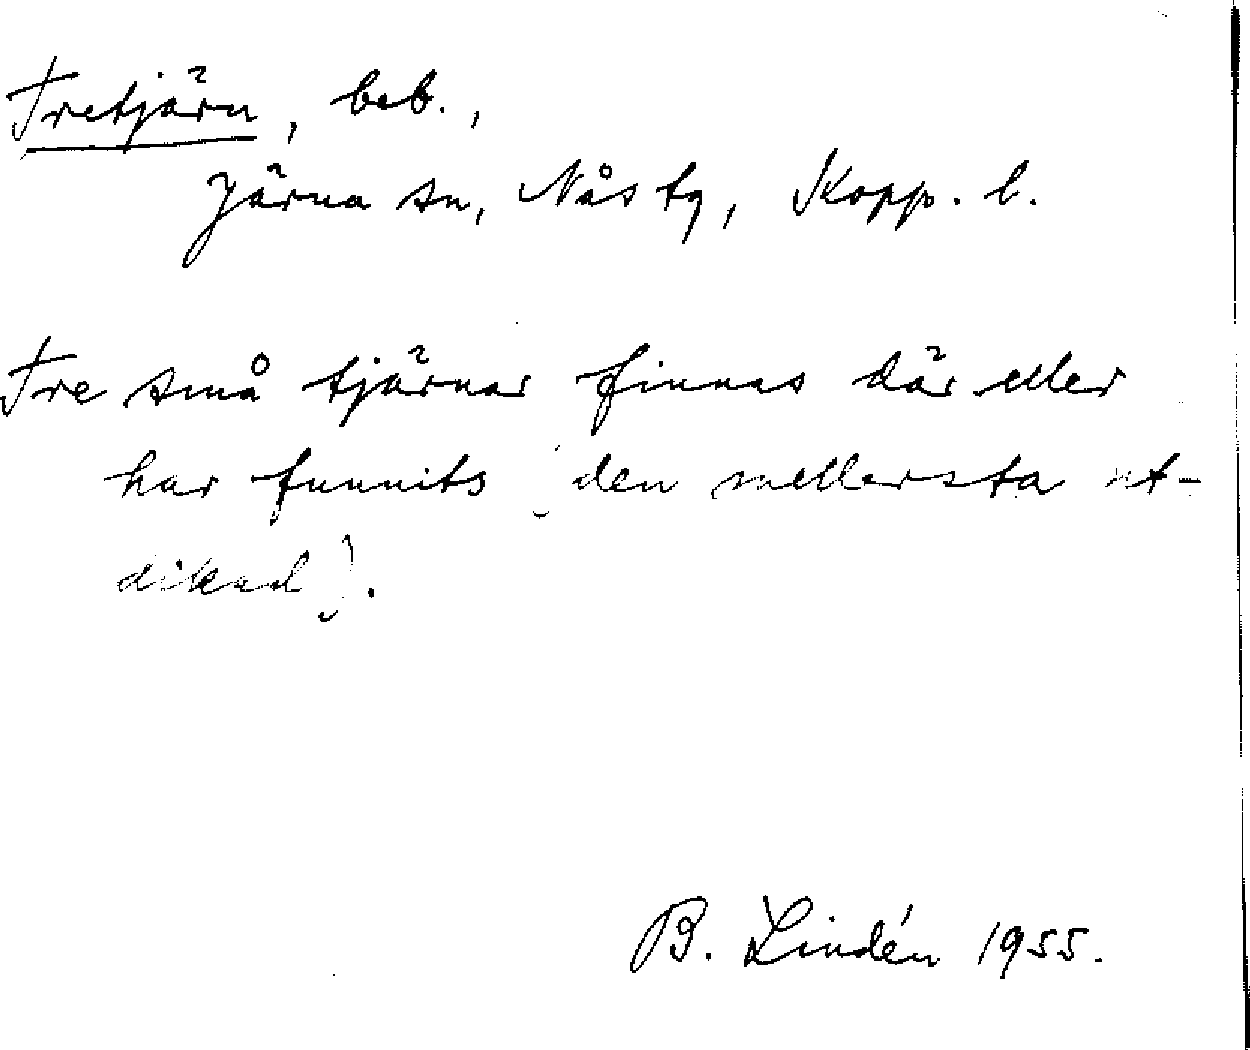 Tretjärn, beb.,
Järna sn, Nås tg, Kopp. l.
Tre små tjärnar finnas där eller
har funnits (den mellersta ut-
dikad).
B. Lindén 1955.